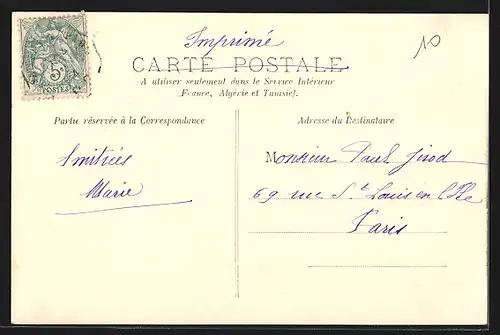 Imprimé
10
CARTE POSTALE
A utiliser seulement dans le Service Intérieur
(France, Algérie et Tunisie).
5c
POSTES
Partie réservée à la Correspondance
Adresse du Destinataire
Amitiés
Marie
Monsieur Paul Girod
69 rue St Louis en l'Ile
Paris